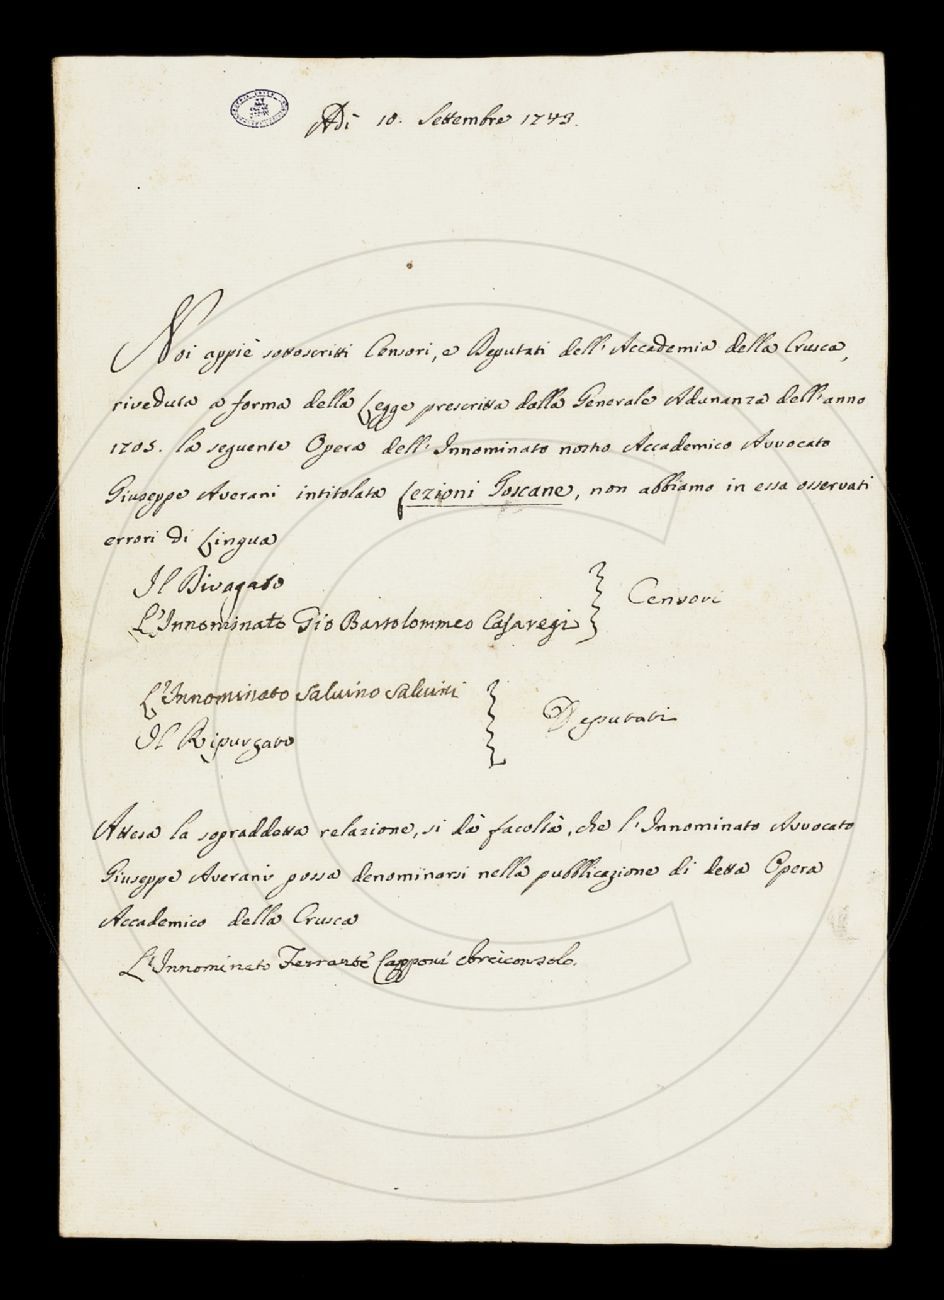 Adì 10. Settembre 1743.
Noi appiè sottoscritti Censori, e Deputati dell' Accademia della Crusca,
riveduta a forma della Legge prescritta dalla Generale Adunanza dell' anno
1705. la seguente Opera dell' Innominato nostro Accademico Avvocato
Giuseppe Averani intitolata Lezioni Toscane, non abbiamo in essa osservati
errori di Lingua
Il Divagato
L'Innominato Gio Bartolommeo Casaregi
Censori
L'Innominato Salvino Salvini
Il Ripurgato
Deputati
Attesa la sopraddetta relazione, si dà facoltà, che l' Innominato Avvocato
Giuseppe Averani possa denominarsi nella pubblicazione di detta Opera
Accademico della Crusca
L'Innominato Ferrante Capponi Arciconsolo.